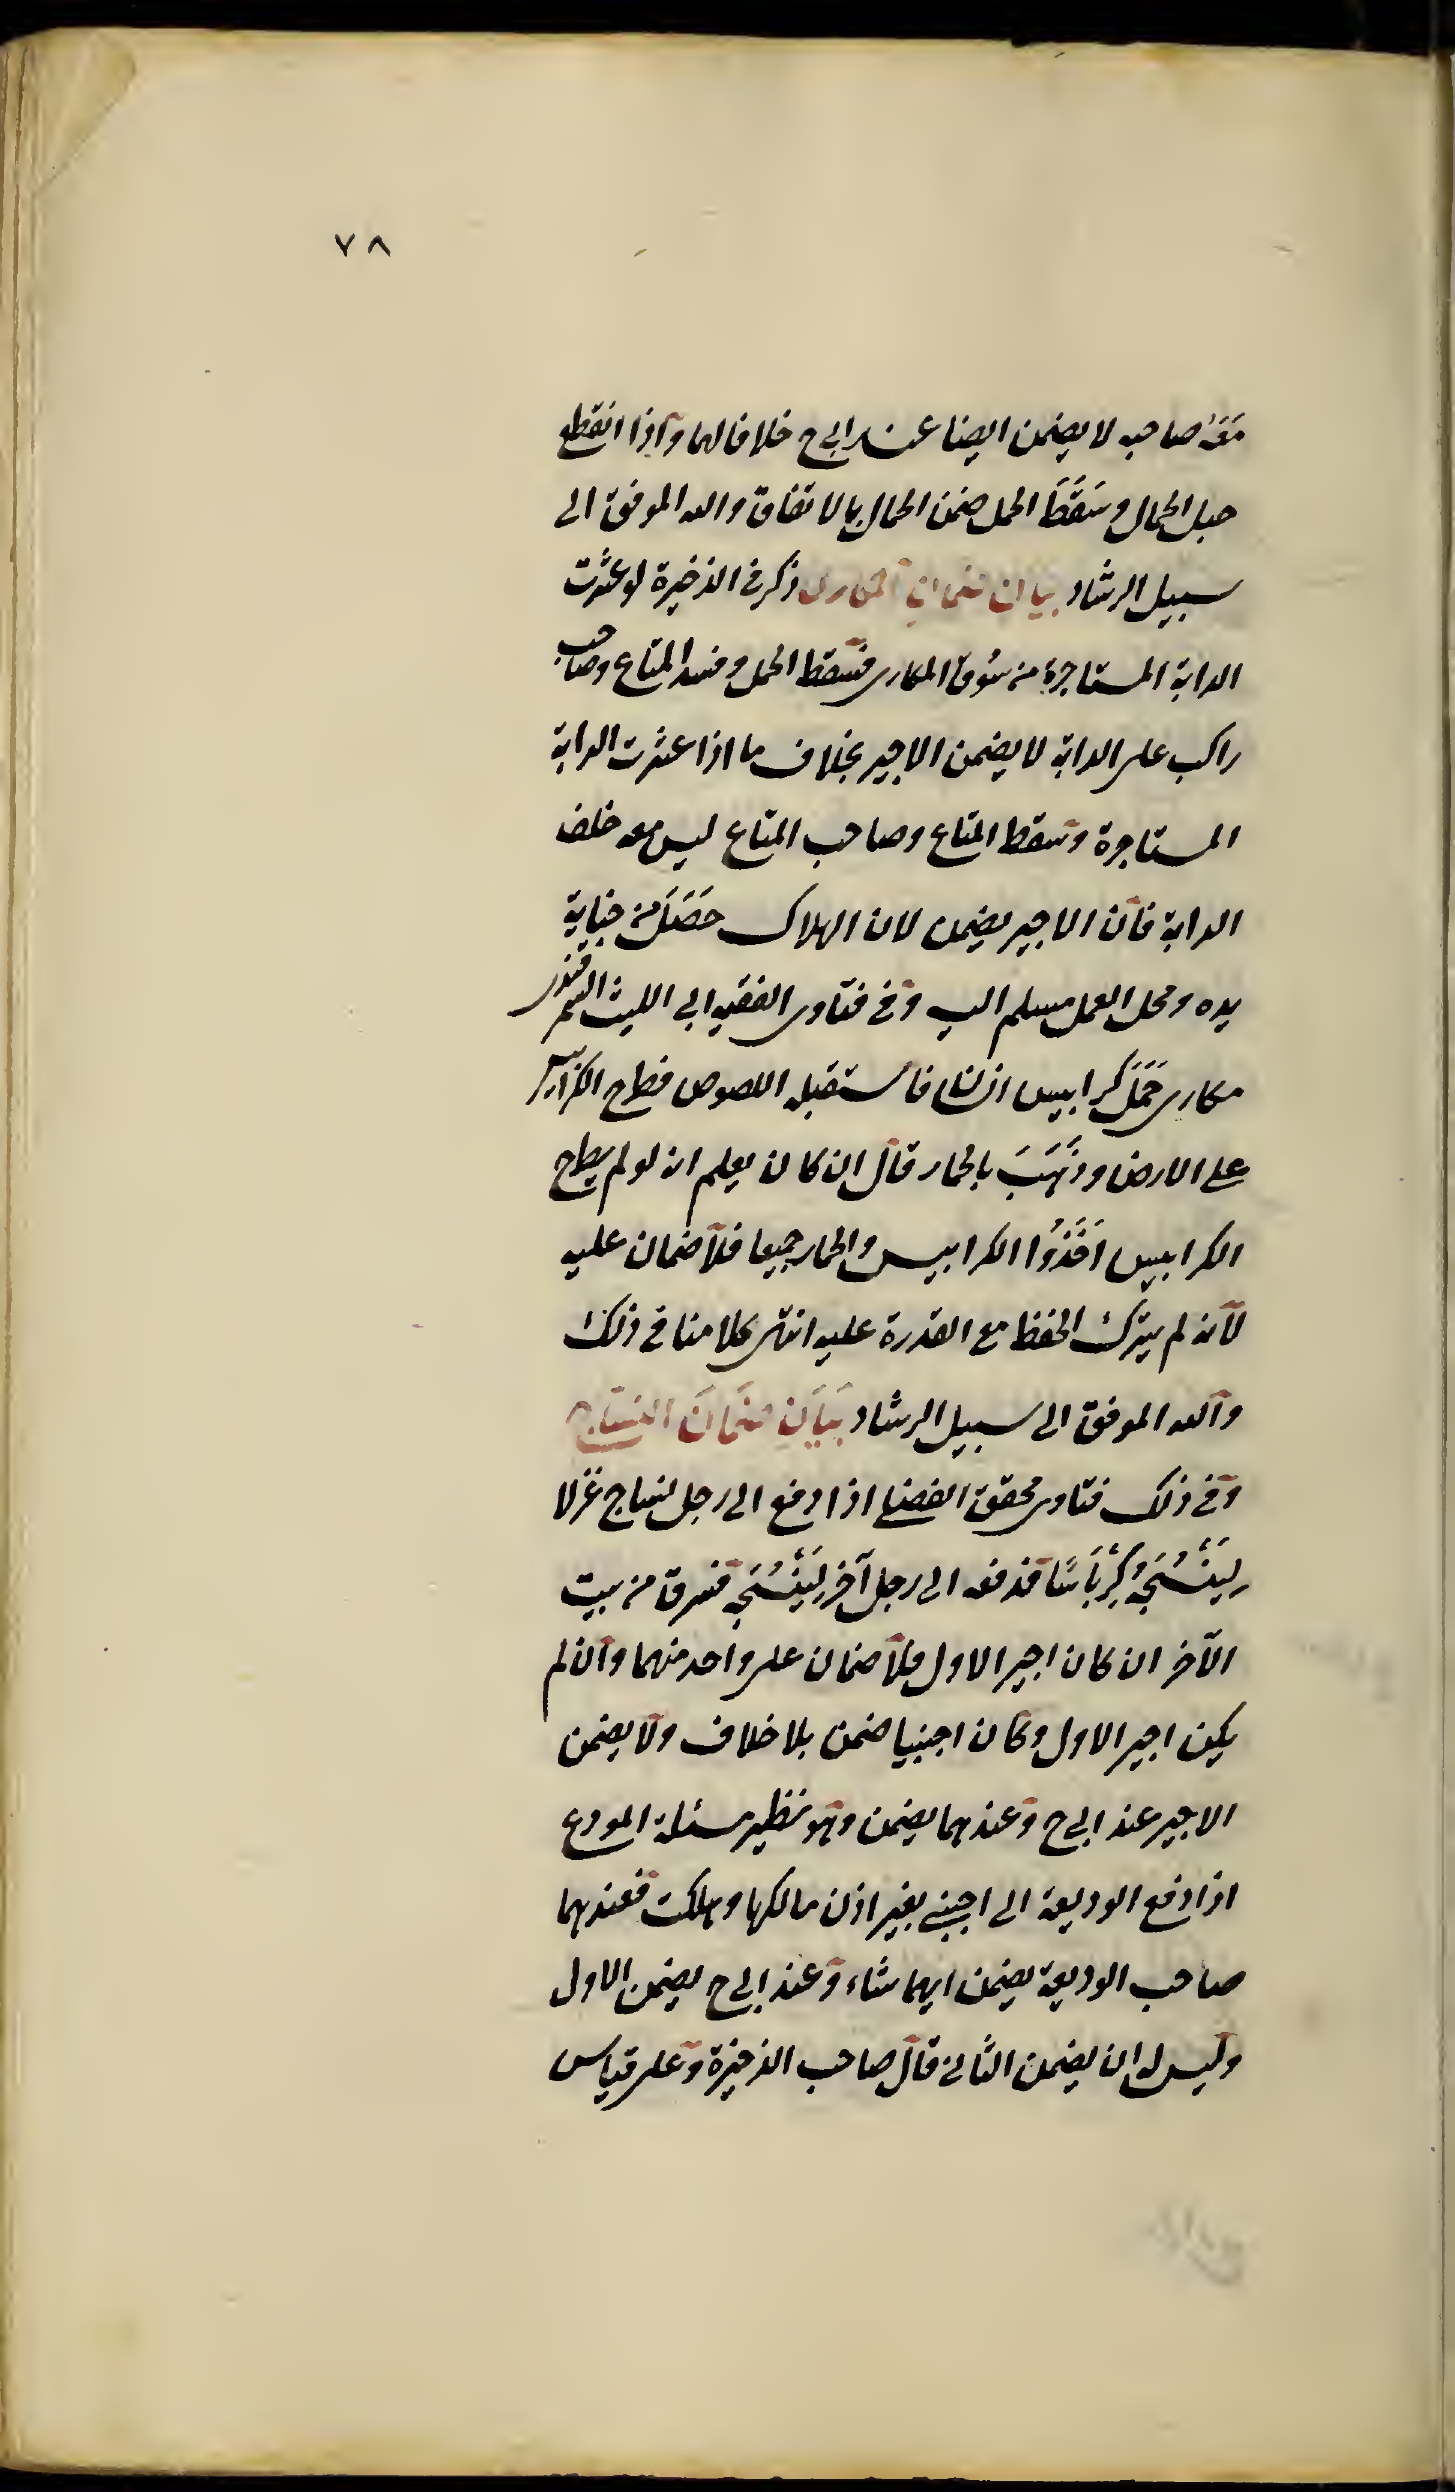 ٧٨
مَعَهُ صاحبه لا يضمن ايضا عند ابى ح خلافا لهما واذا انقطع
حبل الحمال وسَقَطَ الحمل ضمن الحمال بالاتفاق والله الموفق الى
سبيل الرشاد بيان ضمان المكارى ذكر فى الذخيرة لو عثرت
الدابة المستاجرة من سُوق المكارى فسقط الحمل وفسد المتاع وصاحب
راكب على الدابة لا يضمن الاجير بخلاف ما اذا عثرت الدابة
المستاجرة وسقط المتاع وصاحب المتاع ليس معه خلف
الدابة فان الاجير يضمن لان الهلاك حَصَلَ من جناية
يده ومحل العمل مسلم اليه وفى فتاوى الفقيه ابى الليث السمرقندى
مكارى حَمَلَ كرابيس انسان فاستقبله اللصوص فطرح الكرابيس
على الارض وذَهَبَ بالحمار قال ان كان يعلم انه لو لم يطرح
الكرابيس اَخَذُوا الكرابيس والحمار جميعا فلا ضمان عليه
لانه لم يترك الحفظ مع القدرة عليه انتهى كلامنا فى ذلك
والله الموفق الى سبيل الرشاد بَيَان ضَمَان النسّاج
وفى ذلك فتاوى محقق الفضلى اذا دفع الى رجل نساج غزلا
لِيَنْسُجَهُ كِرْبَاسًا فدفعه الى رجل آخر لِيَنْسُجَهُ فسرق من بيت
الآخر ان كان اجير الاول فلا ضمان على واحد منهما وان لم
يكن اجير الاول وكان اجنبيا ضمن بلا خلاف ولا يضمن
الاجير عند ابى ح وعندهما يضمن وهو نظير مسئلة المودع
اذا دفع الوديعة الى اجنبى بغير اذن مالكها وهلكت فعندهما
صاحب الوديعة يضمن ايهما شاء وعند ابى ح يضمن الاول
وليس له ان يضمن الثانى قال صاحب الذخيرة وعلى قياس